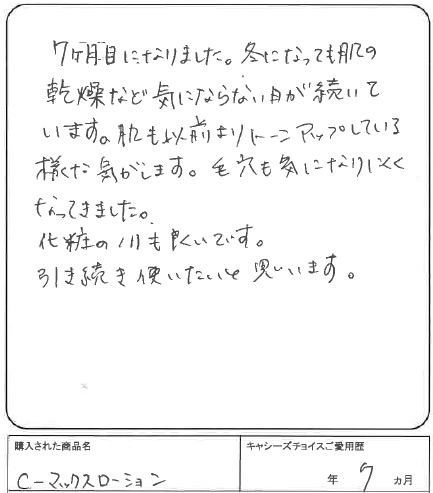 7ヶ月目になりました。冬になっても肌の
乾燥など気にならない日が続いて
います。肌も以前よりトーンアップしている
様な気がします。毛穴も気になりにくく
なってきました。
化粧のノリも良いです。
引き続き使いたいと思います。
購入された商品名
キャシーズチョイスご愛用歴
C-マックスローション
年 7 カ月